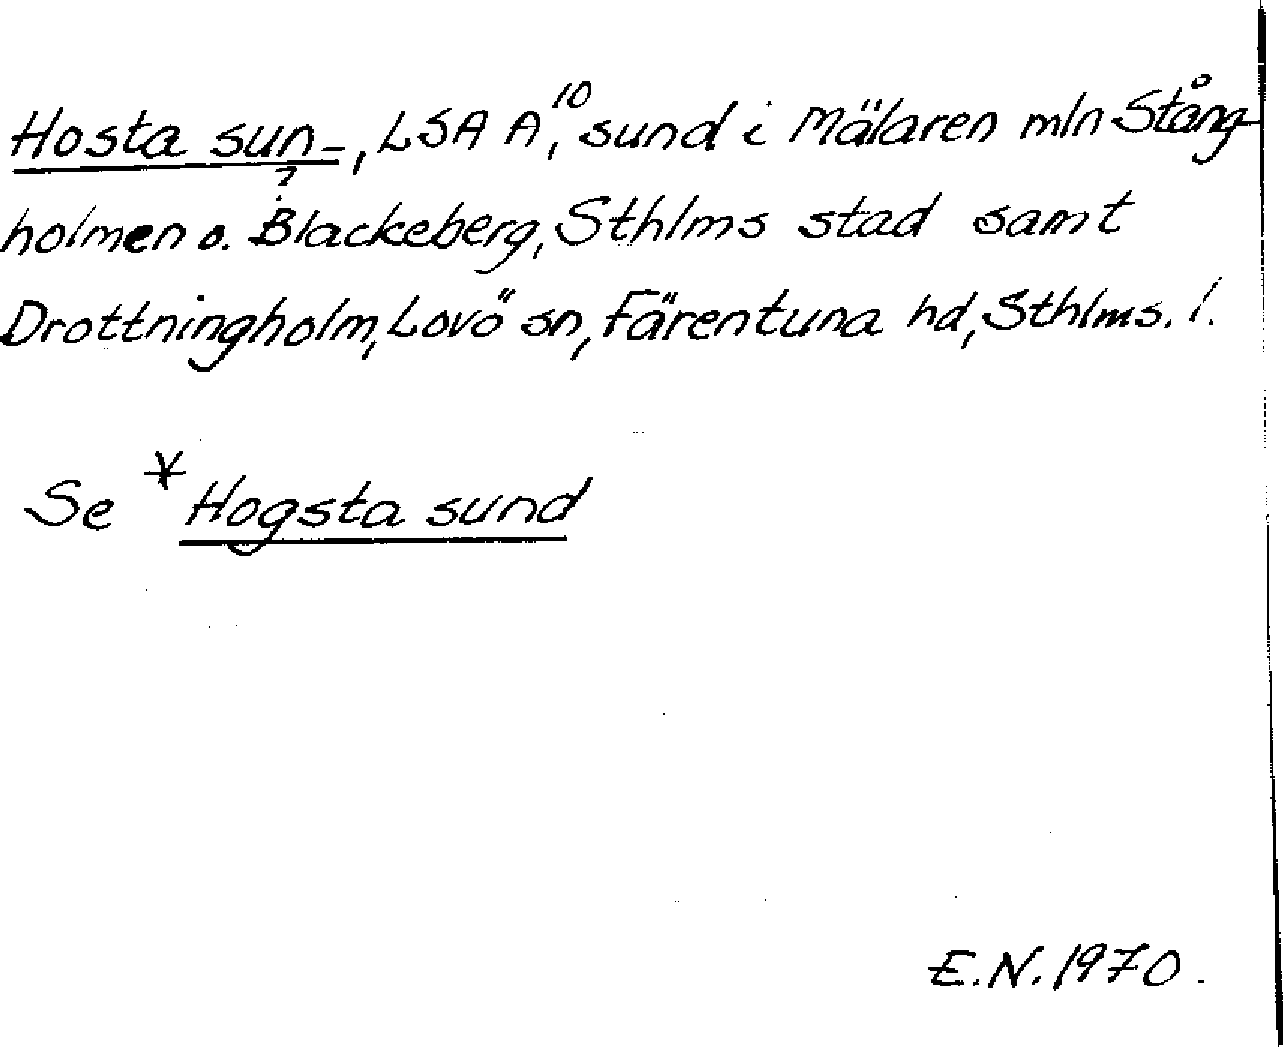 Hosta sun-, LSA A¹⁰, sund i Mälaren mln Stång-
?
holmen o. Blackeberg, Sthlms stad samt
Drottningholm, Lovö sn, Färentuna hd, Sthlms. l.
Se * Hogsta sund
E.N. 1970.